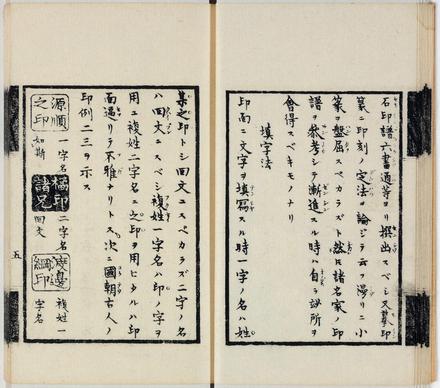 石印譜六書通等ヨリ撰出スベシ又摹印
篆ニ印刻ノ定法ヲ論ジテ云フ漫リニ小
篆ヲ盤屈スベカラズト然㆑諸名家ノ印
譜ヲ参考シテ漸進スル時ハ自ラ悟所ヲ
會得スベキモノナリ
填字法
印面ニ文字ヲ填寫スル時一字ノ名ハ姓
某之印トシ回文ニスベカラズ二字ノ名
ハ回文ニスベシ複姓一字名ハ印ノ字ヲ
用ユ複姓二字名ニ之印ヲ用ヒタルハ印
面過リテ不雅ナリトス次ニ國朝古人ノ
印例二三ヲ示ス
源順之印 一字名如斯 橘諸兄印 二字名回文 渡邊綱印 複姓一字名
五